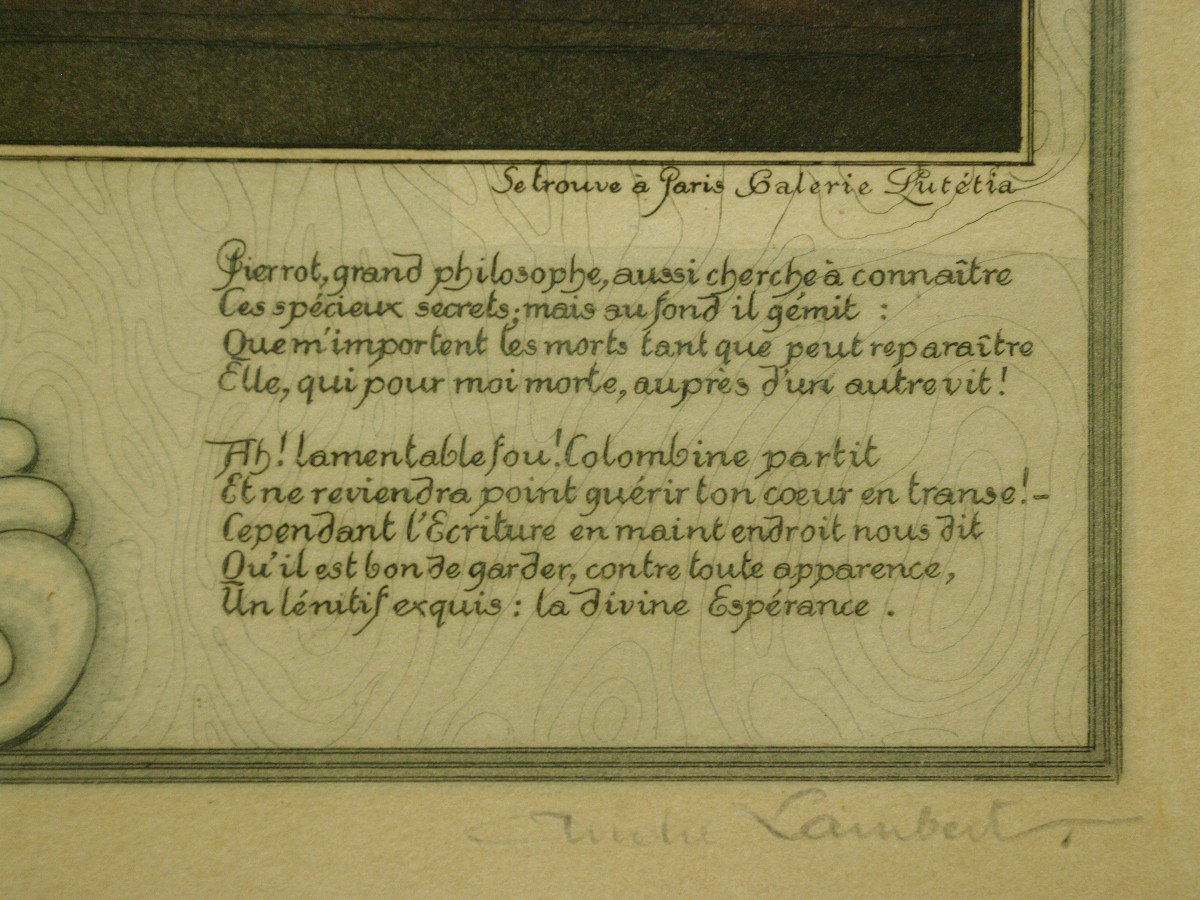 Se trouve à Paris Galerie Lutétia
Pierrot, grand philosophe, aussi cherche à connaître
Ces spécieux secrets; mais au fond il gémit :
Que m'importent les morts tant que peut reparaître
Elle, qui pour moi morte, auprès d'un autre vit !
Ah ! lamentable fou ! Colombine partit
Et ne reviendra point guérir ton cœur en transe ! –
Cependant l'Ecriture en maint endroit nous dit
Qu'il est bon de garder, contre toute apparence,
Un lénitif exquis : la divine Espérance .
André Lambert